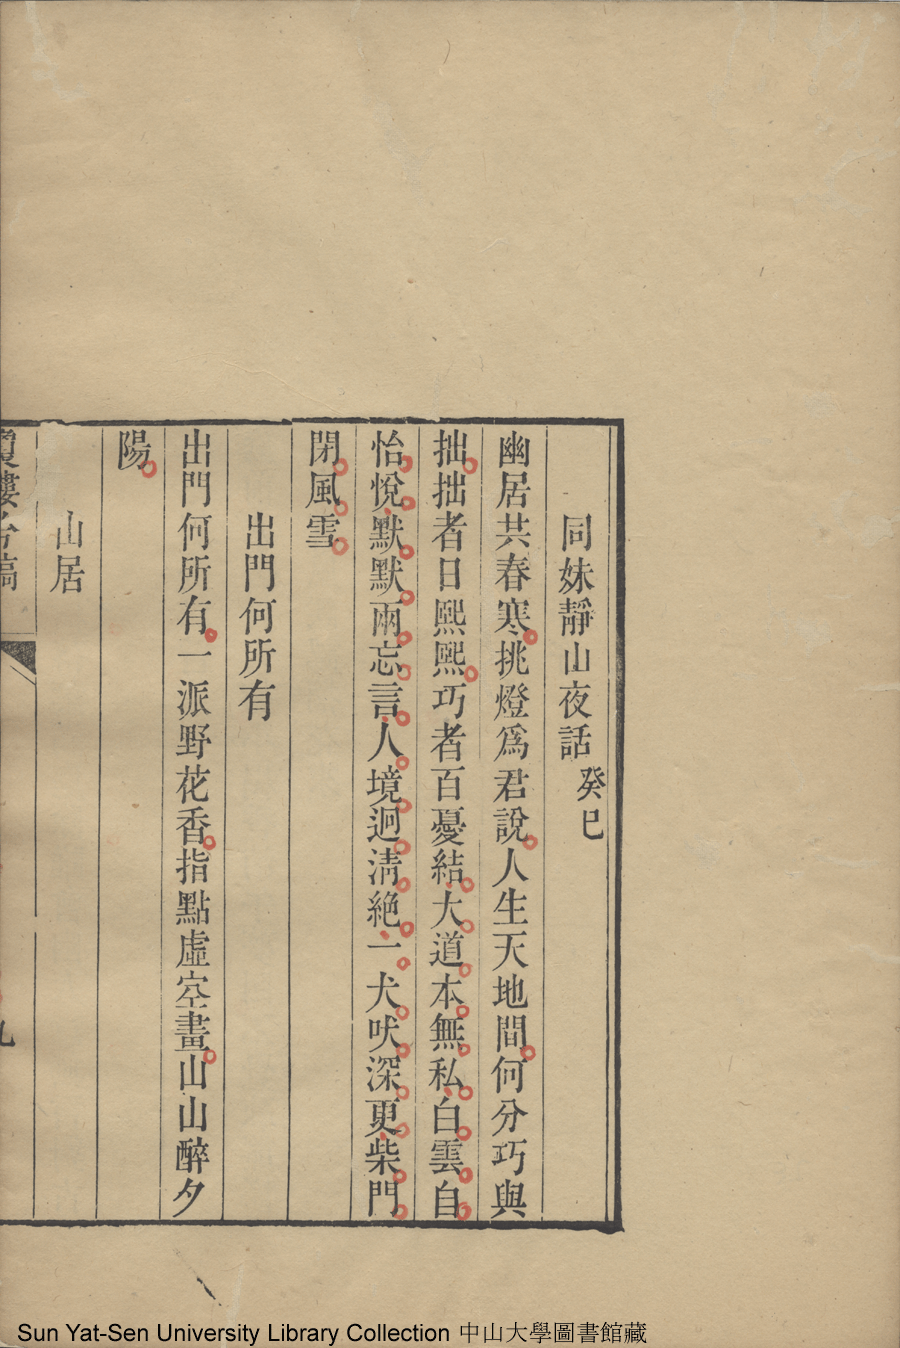 同妹靜山夜話 癸巳
幽居共春寒挑燈爲君說人生天地間何分巧與
拙拙者日熙熙巧者百憂結大道本無私白雲自
怡悅默默兩忘言人境迥淸絶一犬吠深更柴門
閉風雪
出門何所有
出門何所有一派野花香指點虛空畫山山醉夕
陽
山居
Sun Yat-Sen University Library Collection 中山大學圖書館藏